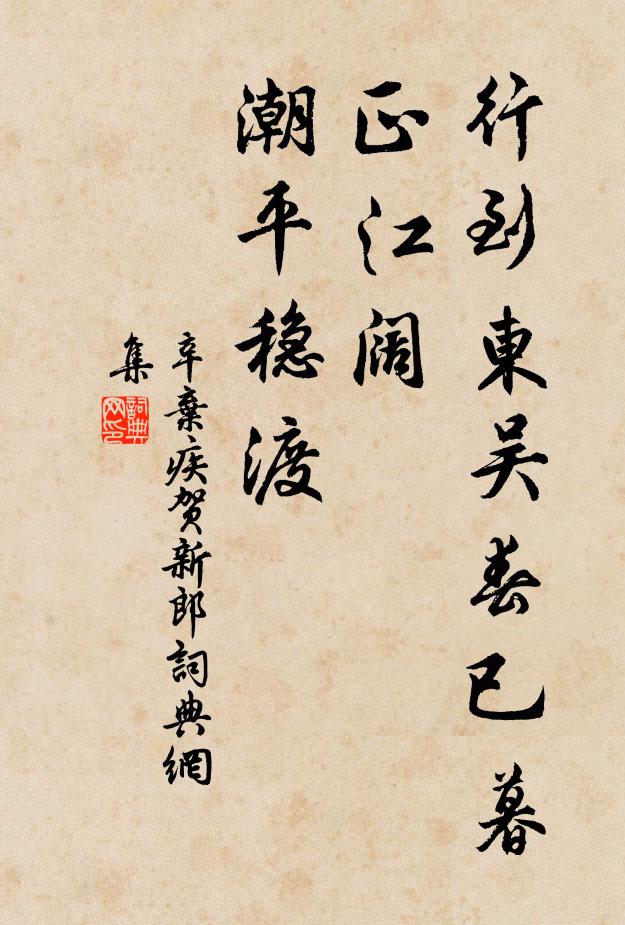 行到東吴春已暮
正江阔
潮平稳渡
辛棄疾贺新郎詞典網
集
詞典网印